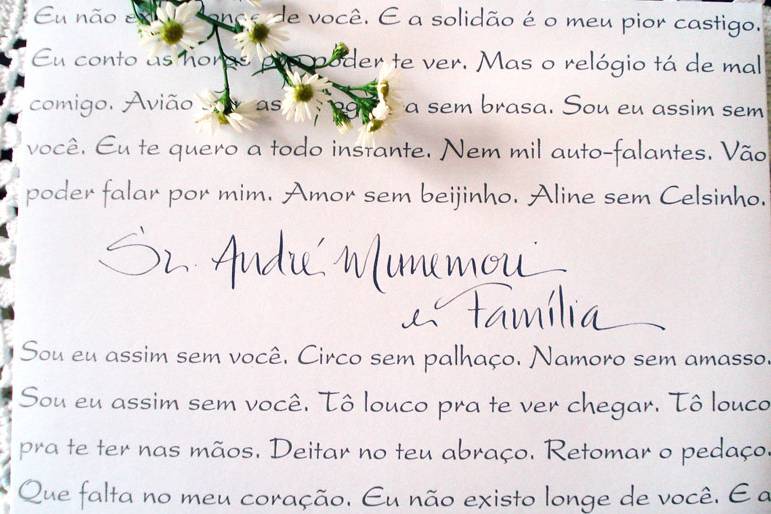 Eu não de você. E a solidão é o meu pior castigo.
Eu conto as horas poder te ver. Mas o relógio tá de mal
comigo. Avião sem brasa. Sou eu assim sem
você. Eu te quero a todo instante. Nem mil auto-falantes. Vão
poder falar por mim. Amor sem beijinho. Aline sem Celsinho.
Sr. André Munemori
e Família
Sou eu assim sem você. Circo sem palhaço. Namoro sem amasso.
Sou eu assim sem você. Tô louco pra te ver chegar. Tô louco
pra te ter nas mãos. Deitar no teu abraço. Retomar o pedaço.
Que falta no meu coração. Eu não existo longe de você. E a